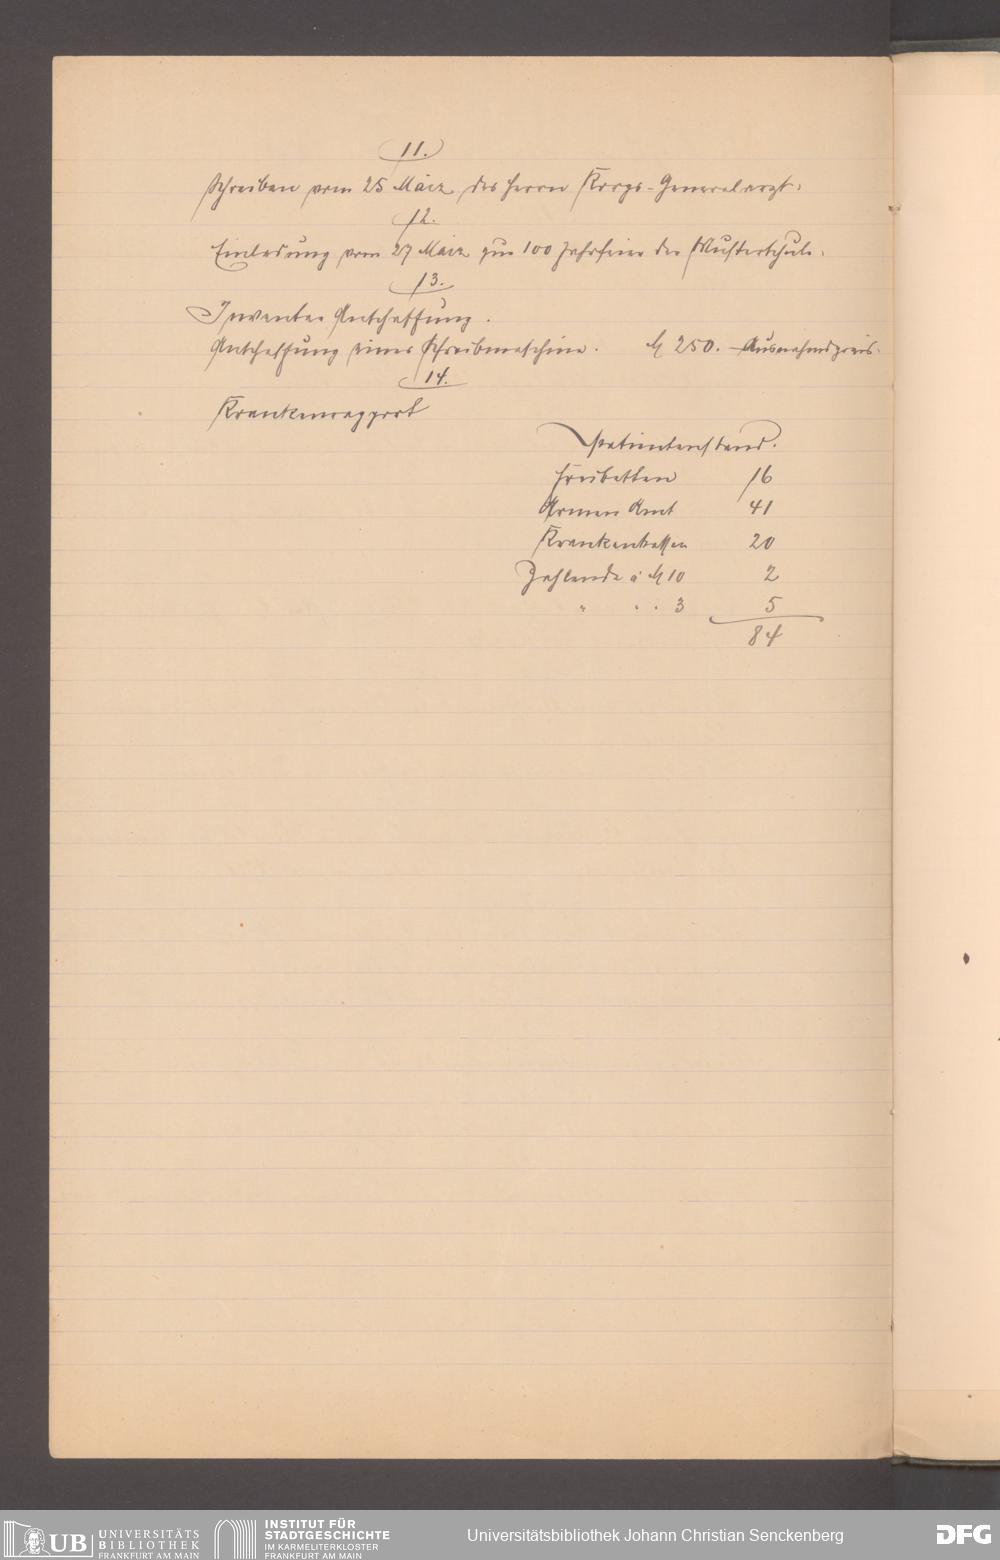 11.
Schreiben vom 25 März des Herrn Korps-Generalarzt.
12.
Einladung vom 27 März zur 100 Jahrfeier der Musterschule.
13.
Inventar Anschaffung.
Anschaffung einer Schreibmaschine. M 250. Ausnahmspreis.
14.
Krankenrapport
Patientenstand.
Freibetten 16
Armen Amt 41
Krankenkassen 20
Zahlende à M 10 2
" " " 3 5
84
UB UNIVERSITÄTS
BIBLIOTHEK
FRANKFURT AM MAIN
INSTITUT FÜR
STADTGESCHICHTE
IM KARMELITERKLOSTER
FRANKFURT AM MAIN
Universitätsbibliothek Johann Christian Senckenberg
DFG